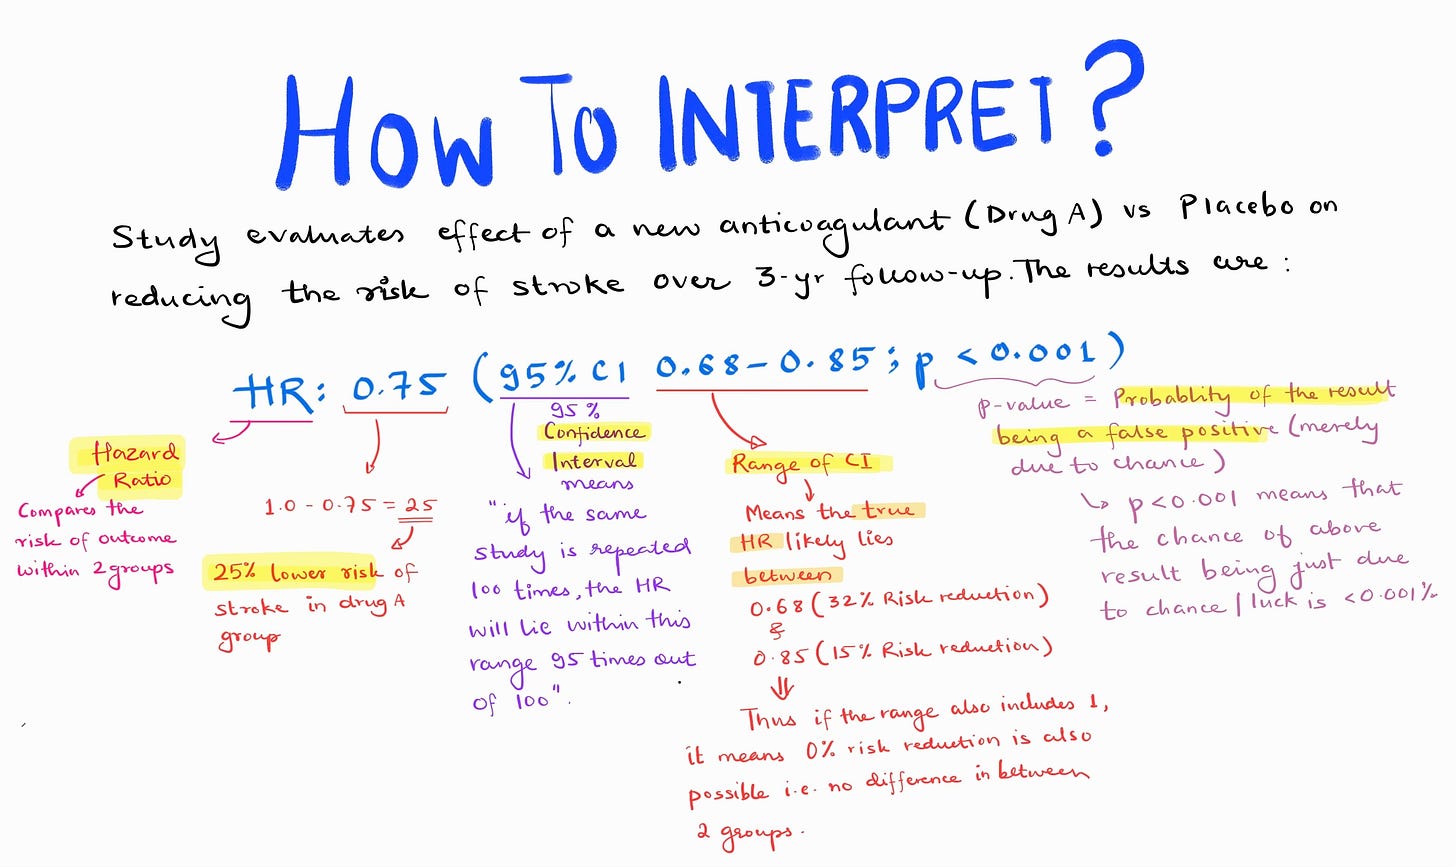 HOW TO INTERPRET?
Study evaluates effect of a new anticoagulant (Drug A) vs Placebo on
reducing the risk of stroke over 3-yr follow-up. The results are:
HR: 0.75 (95% CI 0.68-0.85; p <0.001)
Hazard
Ratio
Compares the
risk of outcome
within 2 groups
1.0 - 0.75 = 25
25% lower risk of
stroke in drug A
group
95%
Confidence
Interval
means
"if the same
study is repeated
100 times, the HR
will lie within this
range 95 times out
of 100".
Range of CI
Means the true
HR likely lies
between
0.68 (32% Risk reduction)
&
0.85 (15% Risk reduction)
Thus if the range also includes 1,
it means 0% risk reduction is also
possible i.e. no difference in between
2 groups.
p-value = Probablity of the result
being a false positive (merely
due to chance)
p<0.001 means that
the chance of above
result being just due
to chance/luck is <0.001%